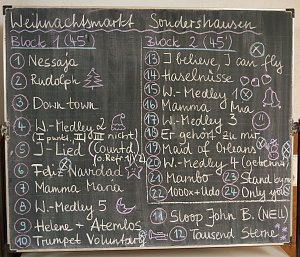 Weihnachtsmarkt Sondershausen
Block 1 (45')
1 Nessaja
2 Rudolph
3 Downtown
4 W.-Medley 2
(I punkt, II, III nicht)
5 J-Lied (Countd)
(o. Refr. 1/2)
6 Feliz Navidad
7 Mamma Maria
8 W.-Medley 5
9 Helene + Atemlos
10 Trumpet Voluntary
Block 2 (45')
13 I believe, I can fly
14 Haselnüsse
15 W.-Medley 1
16 Mamma Mia
17 W.-Medley 3
18 Er gehört zu mir
19 Maid of Orleans
20 W.-Medley 4 (getrennt)
21 Mambo 23 Stand by me
22 1000x+Udo 24 Only you
11 Sloop John B. (NEU)
12 Tausend Sterne